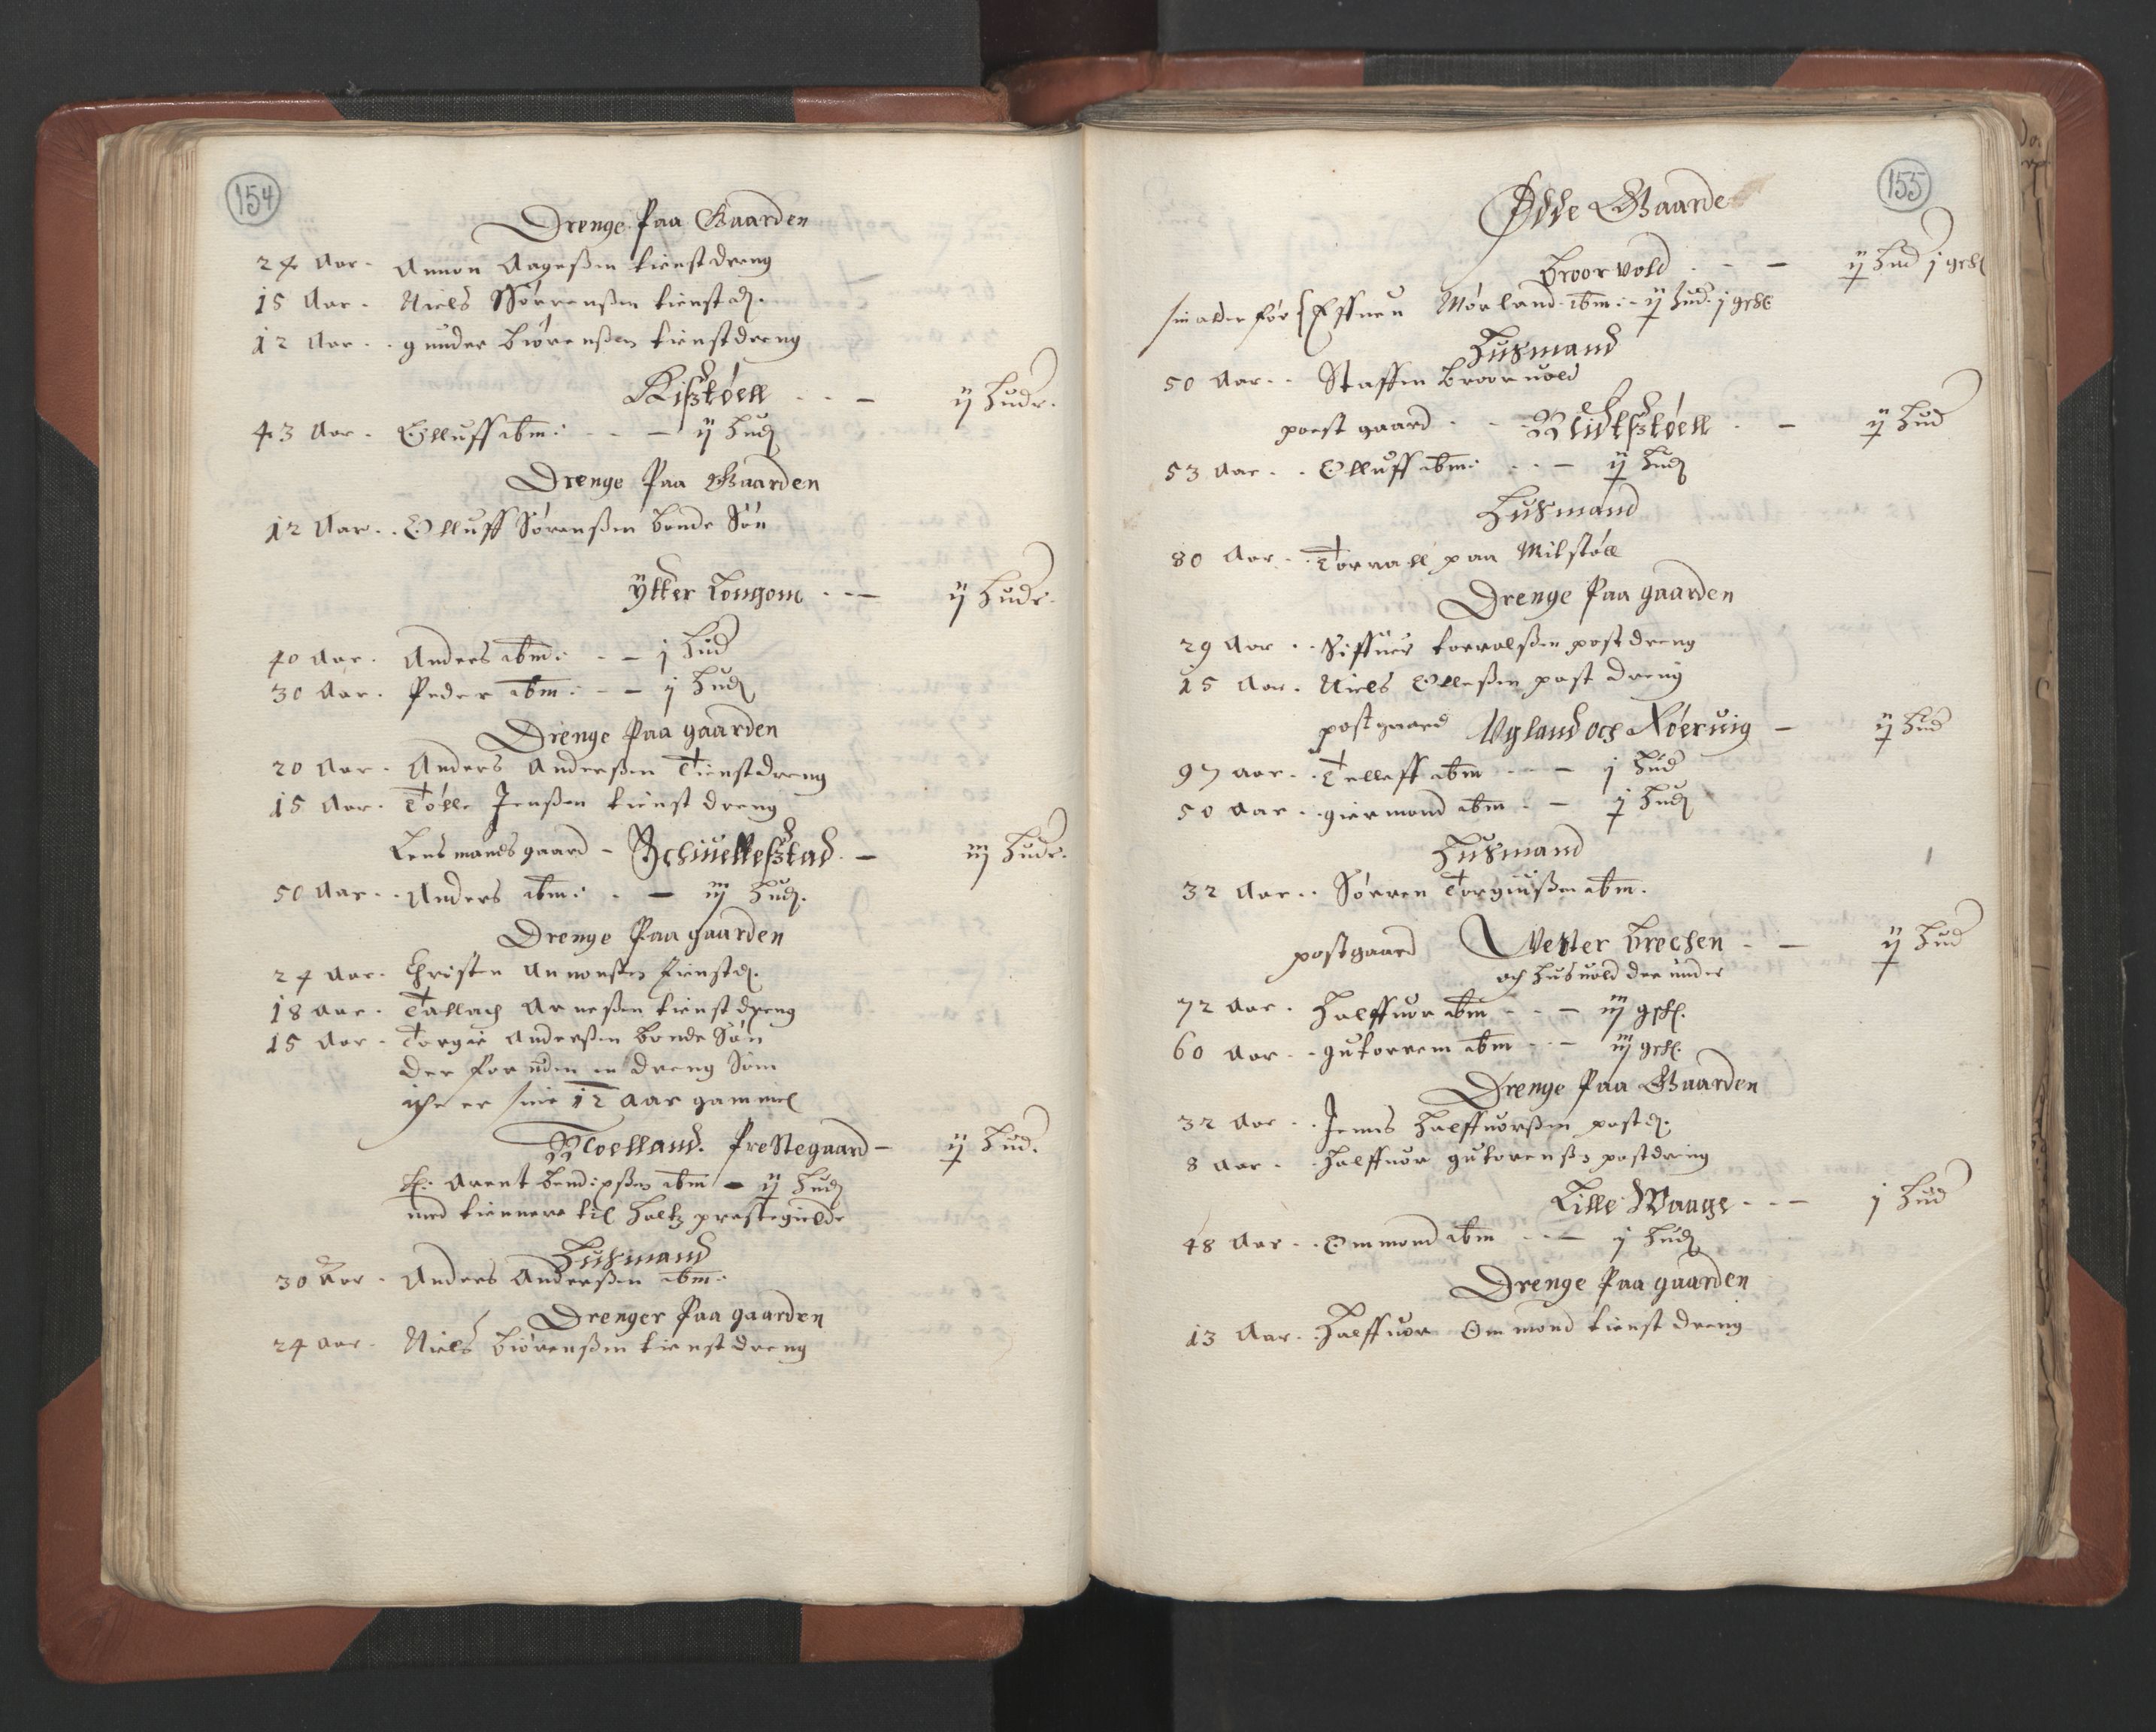 154
Drenge Paa Gaarden
24 Aar. Annon Aageßen tienst dreng
15 Aar. Niels Sørrenßen tienst d.
12 Aar.. gunder Biørenßen tienstdreng
Kißtøell . . – ij Hude.
43 Aar. Olluff ibm: – – ij Hud
Drenge Paa Gaarden
12 Aar.. Olluff Sørenßen bonde Søn
ytter Longom . – – ij Hude.
40 Aar. Anders ibm: . – j Hud
30 Aar. Peder ibm: – – j Hud
Drenge Paa gaarden
20 Aar. Anders Anderßen Tienstdreng
15 Aar. Tølle Jenßen tienst dreng
Lensmands gaard – Schuelleßtad. – iij Hude.
50 Aar.. Anders ibm: . – iij Hud.
Drenge Paa gaarden
24 Aar. Christen Annonßen tienst d.
18 aar. Tallach Arneßen tienst dreng
15 Aar. Torgie Anderßen bonde Søn
der foruden en dreng Som
iche er sine 12 aar gammel
Moelland. Prestegaard – ij Hud.
H: Arent Bendixßen ibm – ij Hud
med tiennere til Holtz prestegield
Husmand
30 Aar. Anders Anderßen ibm:
Drenger Paa gaarden
24 aar. Niels Biørenßen tienst dreng
155
Øde Gaarde
Broorvold . . – ij Hud j geh
Effuen Mørland ibm: – ij Hud. j geh
Husmand
50 Aar.. Staffen Broor uold
poest gaard . – Midtßtøell . – ij Hud
53 Aar.. Olluff ibm: . . – ij Hud
Husmand
80 Aar.. Torrall paa Milstøll
Drenge Paa gaarden
29 Aar.. Siffuer torralßen post dreng
15 Aar. Niels Olleßen post dreng
postgaard Vgland och Røeruig – ij Hud
97 aar.. Telleff ibm . . – j Hud
50 Aar. giermond ibm . – j Hud
Husmand
32 Aar.. Sørren Torgiußen ibm.
postgaard Vester Brechen . – ij Hud
och Husuold der under
72 Aar. Halffuor ibm . . – iij geh.
60 Aar.. gutorrem ibm . . – iij geh.
Drenge Paa Gaarden
32 Aar.. Jenns Halffuorßen post d.
8 Aar.. Halffuor gutorenßen postdreng
Lille Waage . . – j Hud
48 Aar.. Ommond ibm . . – j Hud
Drenge Paa gaarden
13 Aar. Halffuor Ommond tienst dreng